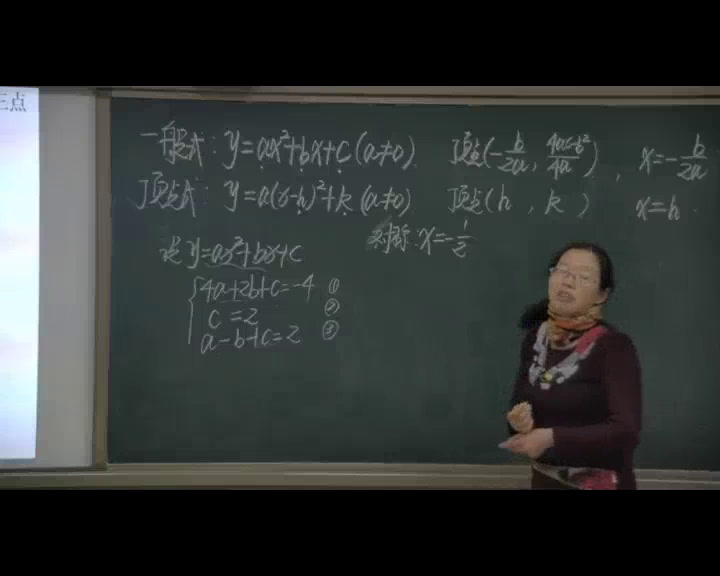 三点
一般式: y=ax²+bx+c (a≠0) 顶点(-b/2a, 4ac-b²/4a), x=-b/2a
顶点式: y=a(x-h)²+k (a≠0) 顶点(h, k) x=h
对称: x=-1/2
设y=ax²+bx+c
4a+2b+c=-4 ①
c=2 ②
a-b+c=2 ③